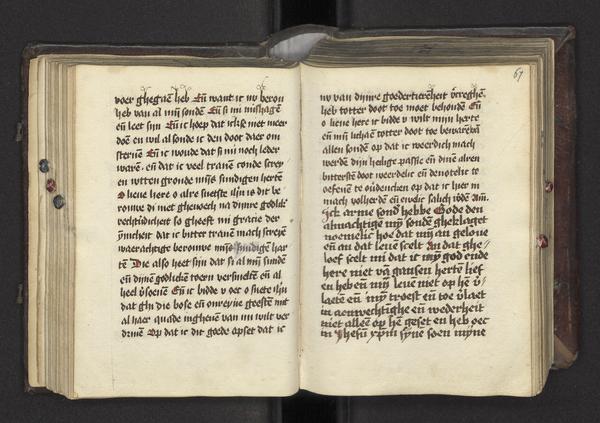 voer ghegaen heb En̄ want ic nv berou
heb van al mȳ sondē En̄ si mi mishagēt
en̄ leet sijn En̄ ic hoep dat ic se niet meer
doē en wil al sonde ic den doot daer om
steruen En̄ ic woude dat si mi noch leder
warē en̄ dat ic veel tranē conde screy
en wtten gronde mijns sundigen hertē
O lieue here o alre suetste ihū is dit be
rouwe di niet ghenoech na dijnre godlik
so gheeft mi gracie der
dat ic bitter tranē mach screyē
waerachtige berouwe mijns sundigen har
tē Die also heet sijn dat si al mȳ sundē
en̄ dijnē godlickē toern en̄ al
heel En̄ ic bidde v oec o suete ihū
dat ghi die bose en̄ geestē mit
al haer quade ingheuen van mi wilt ver
driuē Op dat ic dit goede opset dat ic
67
nv van dijnre goedertierēheit
heb totter doot toe moet behoudē En̄
o lieue here ic bidde v wilt mijn herte
en̄ mȳ lichaē totter doot toe bewarē vā
allen sondē op dat ic weerdich mach
werdē dijn heilige passie en̄ dinē alren
bittersten doot weerdelic en̄ deuotelic te
oefenē te op dat ic hier in
mach volherdē en̄ ewelic salich Am̄
Ick arme sond hebbe Gode den
almachtige mȳ sondē gheklaget
noemelic hoe dat mȳ an gelove
en̄ an dat leue scelt An dat ghe
loef scelt mi dat ic mȳ god ende
here niet vā gansen hertē lief
en heb en̄ mȳ leue niet op hē
laetē en̄ mȳ troest en̄ toe v̄laet
in aenvechtighe en̄ wederheit
niet alleē op hē geset en heb oec
in Jhesu xp̄m sȳne soen mȳne